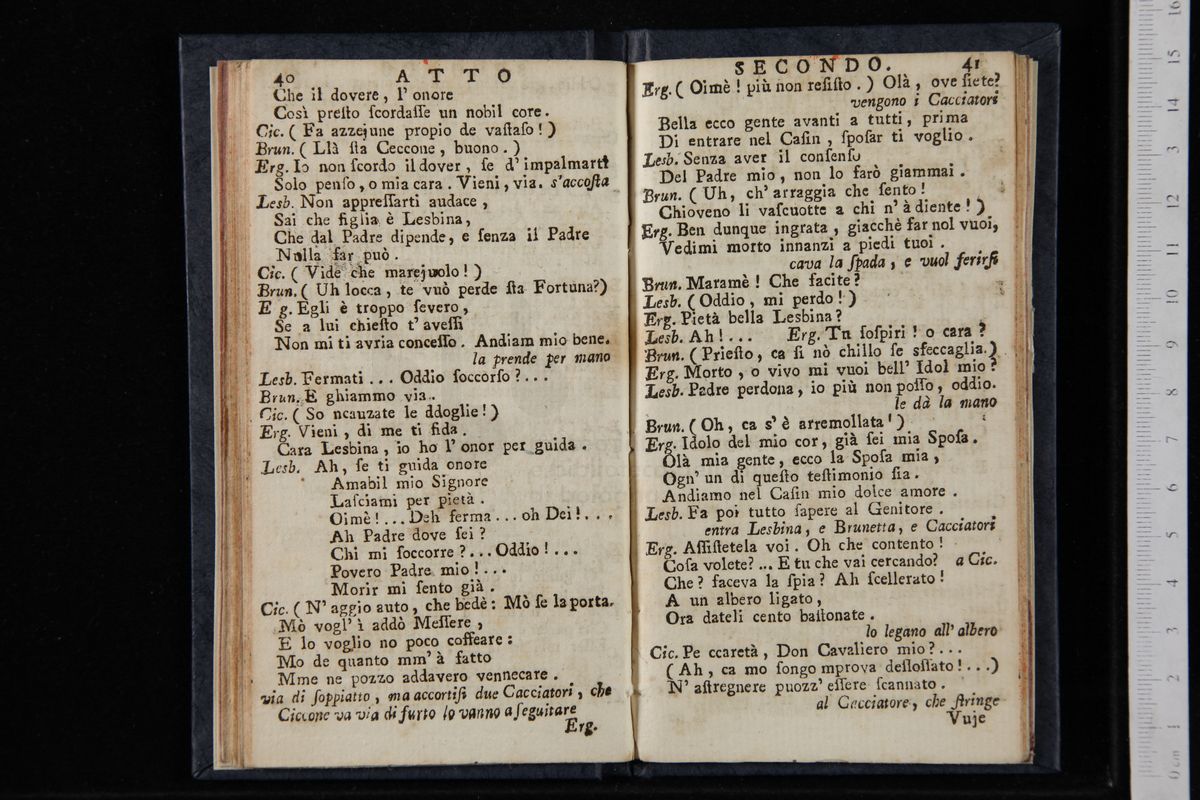 40 ATTO
Che il dovere, l' onore
Così preſto ſcordaſſe un nobil core.
Cic. ( Fa azzejune propio de vaſtaſo! )
Brun. ( Llà ſta Ceccone, buono. )
Erg. Io non ſcordo il dover, ſe d' impalmarti
Solo penſo, o mia cara. Vieni, via. s'accoſta
Lesb. Non appreſſarti audace,
Sai che figlia è Lesbina,
Che dal Padre dipende, e ſenza il Padre
Nulla far può.
Cic. ( Vide che marejuolo! )
Brun. ( Uh locca, te vuò perde ſta Fortuna?)
E g. Egli è troppo ſevero,
Se a lui chieſto t' aveſſi
Non mi ti avria conceſſo. Andiam mio bene.
la prende per mano
Lesb. Fermati... Oddio ſoccorſo?...
Brun. E ghiammo via.
Cic. ( So ncauzate le ddoglie! )
Erg. Vieni, di me ti fida.
Cara Lesbina, io ho l' onor per guida.
Lesb. Ah, ſe ti guida onore
Amabil mio Signore
Laſciami per pietà.
Oimè!...Deh ferma...oh Dei!...
Ah Padre dove ſei?
Chi mi ſoccorre?...Oddio!...
Povero Padre mio!...
Morir mi ſento già.
Cic. ( N' aggio auto, che bedè: Mò ſe la porta.
Mò vogl' ì addò Meſſere,
E lo voglio no poco coffeare:
Mo de quanto mm' à fatto
Mme ne pozzo addavero vennecare.
via di ſoppiatto, ma accortiſi due Cacciatori, che
Ciccone va via di furto lo vanno a ſeguitare
Erg.
SECONDO. 41
Erg. ( Oimè! più non reſiſto. ) Olà, ove ſiete?
vengono i Cacciatori
Bella ecco gente avanti a tutti, prima
Di entrare nel Caſin, ſpoſar ti voglio.
Lesb. Senza aver il conſenſo
Del Padre mio, non lo farò giammai.
Brun. ( Uh, ch' arraggia che ſento!
Chioveno li vaſcuotte a chi n' à diente! )
Erg. Ben dunque ingrata, giacchè far nol vuoi,
Vedimi morto innanzi a piedi tuoi.
cava la ſpada, e vuol ferirſi
Brun. Maramè! Che facite?
Lesb. ( Oddio, mi perdo! )
Erg. Pietà bella Lesbina?
Lesb. Ah!... Erg. Tu ſoſpiri! o cara?
Brun. ( Prieſto, ca ſi nò chillo ſe sfeccaglia.)
Erg. Morto, o vivo mi vuoi bell' Idol mio?
Lesb. Padre perdona, io più non poſſo, oddio.
le dà la mano
Brun. ( Oh, ca s' è arremollata! )
Erg. Idolo del mio cor, già ſei mia Spoſa.
Olà mia gente, ecco la Spoſa mia,
Ogn' un di queſto teſtimonio ſia.
Andiamo nel Caſin mio dolce amore.
Lesb. Fa poi tutto ſapere al Genitore.
entra Lesbina, e Brunetta, e Cacciatori
Erg. Aſſiſtetela voi. Oh che contento!
Coſa volete?... E tu che vai cercando? a Cic.
Che? faceva la ſpia? Ah ſcellerato!
A un albero ligato,
Ora dateli cento baſtonate.
lo legano all' albero
Cic. Pe ccaretà, Don Cavaliero mio?...
( Ah, ca mo ſongo mprova deſloſſato!...)
N' aſtregnere puozz' eſſere ſcannato.
al Cacciatore, che ſtringe
Vuje